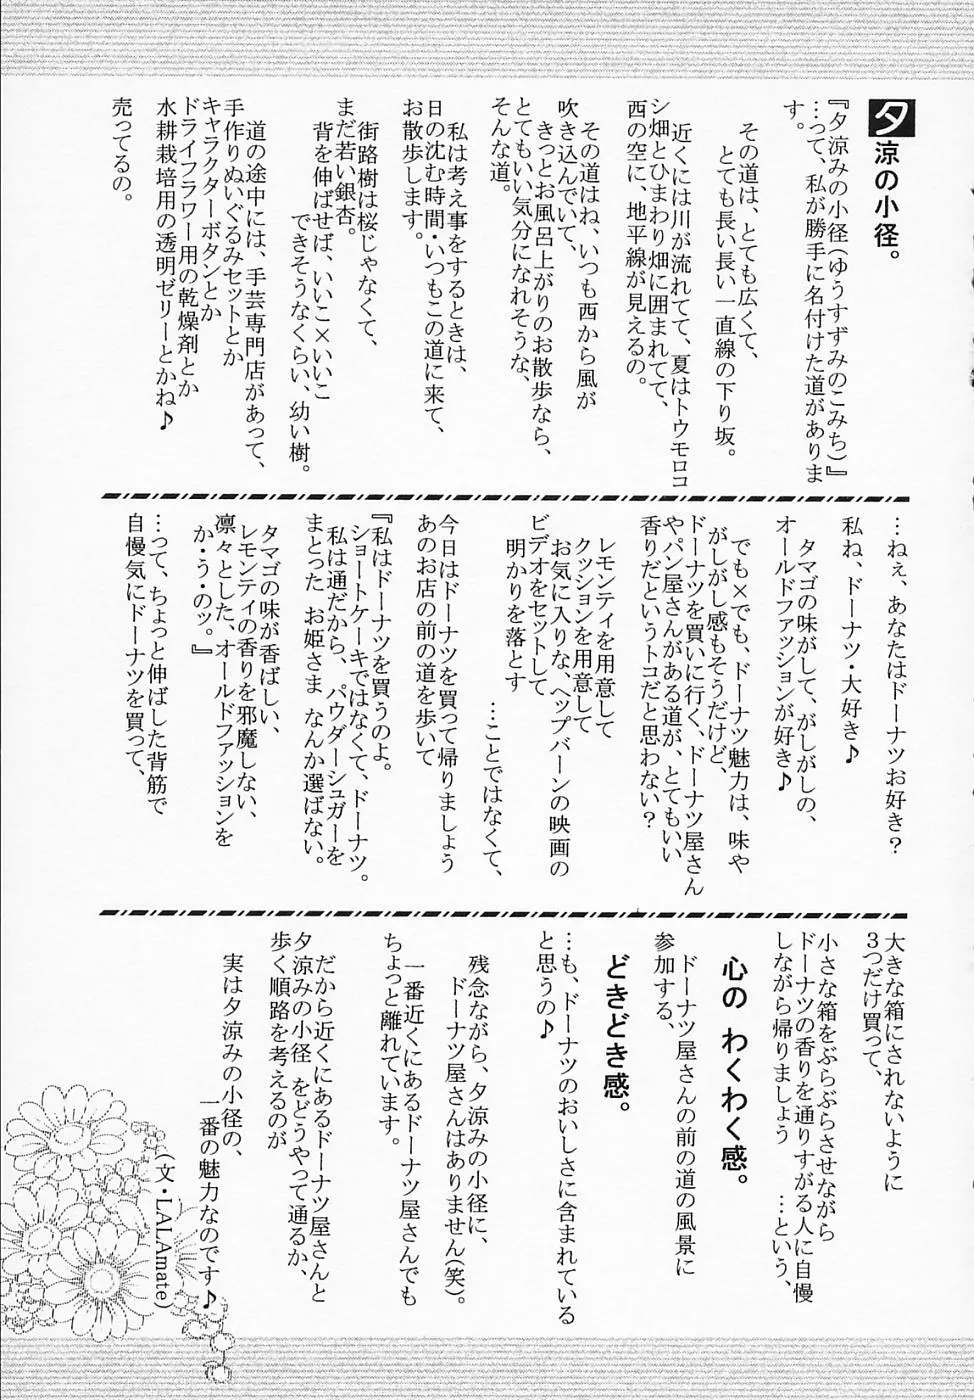 夕涼の小径。
『夕涼みの小径(ゆうすずみのこみち)』
…って、私が勝手に名付けた道がありま
す。
その道は、とても広くて、
とても長い長い一直線の下り坂。
近くには川が流れてて、夏はトウモロコ
シ畑とひまわり畑に囲まれてて、
西の空に、地平線が見えるの。
その道はね、いつも西から風が
吹き込んでいて、
きっとお風呂上がりのお散歩なら、
とてもいい気分になれそうな、
そんな道。
私は考え事をするときは、
日の沈む時間・いつもこの道に来て、
お散歩します。
街路樹は桜じゃなくて、
まだ若い銀杏。
背を伸ばせば、いいこ×いいこ
できそうなくらい、幼い樹。
道の途中には、手芸専門店があって、
手作りぬいぐるみセットとか
キャラクターボタンとか
ドライフラワー用の乾燥剤とか
水耕栽培用の透明ゼリーとかね♪
売ってるの。
…ねぇ、あなたはドーナツお好き？
私ね、ドーナツ・大好き♪
タマゴの味がして、がしがしの、
オールドファッションが好き♪
でも×でも、ドーナツ魅力は、味や
がしがし感もそうだけど、
ドーナツを買いに行く、ドーナツ屋さん
やパン屋さんがある道が、とてもいい
香りだというトコだと思わない？
レモンティを用意して
クッションを用意して
お気に入りな、ヘップバーンの映画の
ビデオをセットして
明かりを落とす
…ことではなくて、
今日はドーナツを買って帰りましょう
あのお店の前の道を歩いて
『私はドーナツを買うのよ。
ショートケーキではなくて、ドーナツ。
私は通だから、パウダーシュガーを
まとった お姫さま なんか選ばない。
タマゴの味が香ばしい、
レモンティの香りを邪魔しない、
凛々とした、オールドファッションを
か・う・のッ。』
…って、ちょっと伸ばした背筋で
自慢気にドーナツを買って、
大きな箱にされないように
3つだけ買って、
小さな箱をぶらぶらさせながら
ドーナツの香りを通りすがる人に自慢
しながら帰りましょう …という、
心の わくわく感。
ドーナツ屋さんの前の道の風景に
参加する、
どきどき感。
…も、ドーナツのおいしさに含まれている
と思うの♪
残念ながら、夕涼みの小径に、
ドーナツ屋さんはありません(笑)。
一番近くにあるドーナツ屋さんでも
ちょっと離れています。
だから近くにあるドーナツ屋さんと
夕涼みの小径 をどうやって通るか、
歩く順路を考えるのが
実は夕涼みの小径の、
一番の魅力なのです♪
(文・LALAmate)